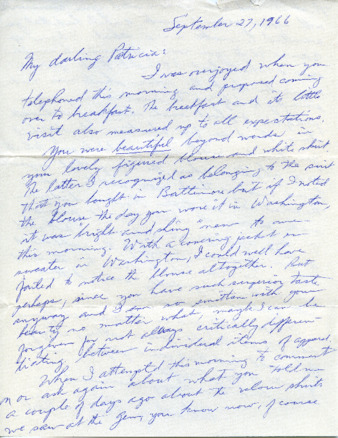 September 27, 1966
My darling Patricia:
I was overjoyed when you
telephoned this morning and proposed coming
over to breakfast. The breakfast and its little
visit also measured up to all expectations.
You were beautiful beyond words in
your lovely figured blouse and white skirt.
The latter I recognized as belonging to the suit
that you bought in Baltimore but if I noted
the blouse the day you wore it in Washington,
it was bright and "new" to me
this morning. With a covering jacket or
sweater in Washington, I could well have
failed to notice the blouse altogether. But
perhaps, since you have such superior taste
anyway and I am so smitten with your
beauty no matter what, maybe I can be
forgiven for not always critically differen-
tiating between individual items of apparel.
When I attempted this morning to comment
or ask again about what you told me
a couple of days ago about the shirts
we saw at the you know now, of course